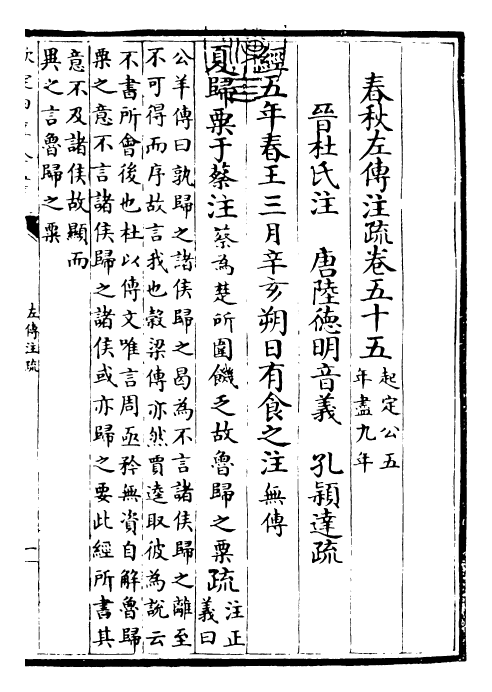 春秋左傳注疏卷五十五起定公五
年盡九年
晉杜氏注　唐陸德明音義　孔穎達疏
經五年春王三月辛亥朔日有食之注無傳
夏歸粟于蔡注蔡為楚所圍饑乏故魯歸之粟疏注正
義曰
公羊傳曰孰歸之諸侯歸之曷為不言諸侯歸之離至
不可得而序故言我也穀梁傳亦然賈逵取彼為說云
不書所會後也杜以傳文唯言周亟矜無資自解魯歸
粟之意不言諸侯歸之諸侯或亦歸之要此經所書其
意不及諸侯故顯而
異之言魯歸之粟
左傳注疏
一